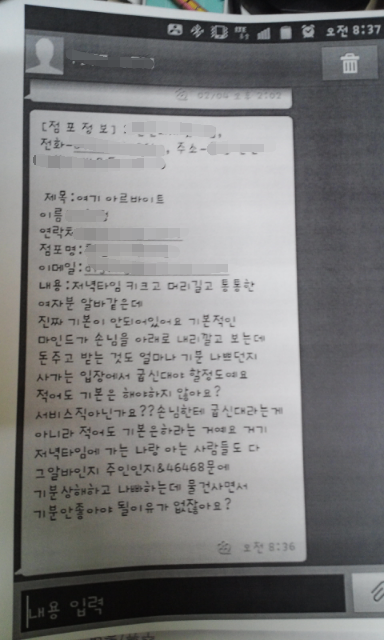 오전 8:37
07/04 오후 2:07
[점포정보] :
전화- , 주소-
제목:여기 아르바이트
이름
연락처
점포명:
이메일:
내용:저녁타임 키크고 머리길고 통통한
여자분 알바같은데
진짜 기본이 안되어있어요 기본적인
마인드가 손님을 아래로 내리깔고 보는데
돈주고 받는 것도 얼마나 기분 나쁘던지
사가는 입장에서 굽신대야 할정도예요
적어도 기본은 해야하지 않아요?
서비스직아닌가요??손님한테 굽신대라는게
아니라 적어도 기본은하라는 거예요 거기
저녁타임에 가는 나랑 아는 사람들도 다
그알바인지 주인인지&46468문에
기분상해하고 나빠하는데 물건사면서
기분안좋아야 될이유가 없잖아요?
오전 8:36
내용 입력